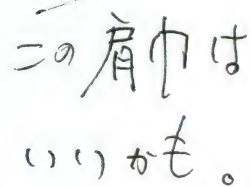 この肩巾は
いいかも。